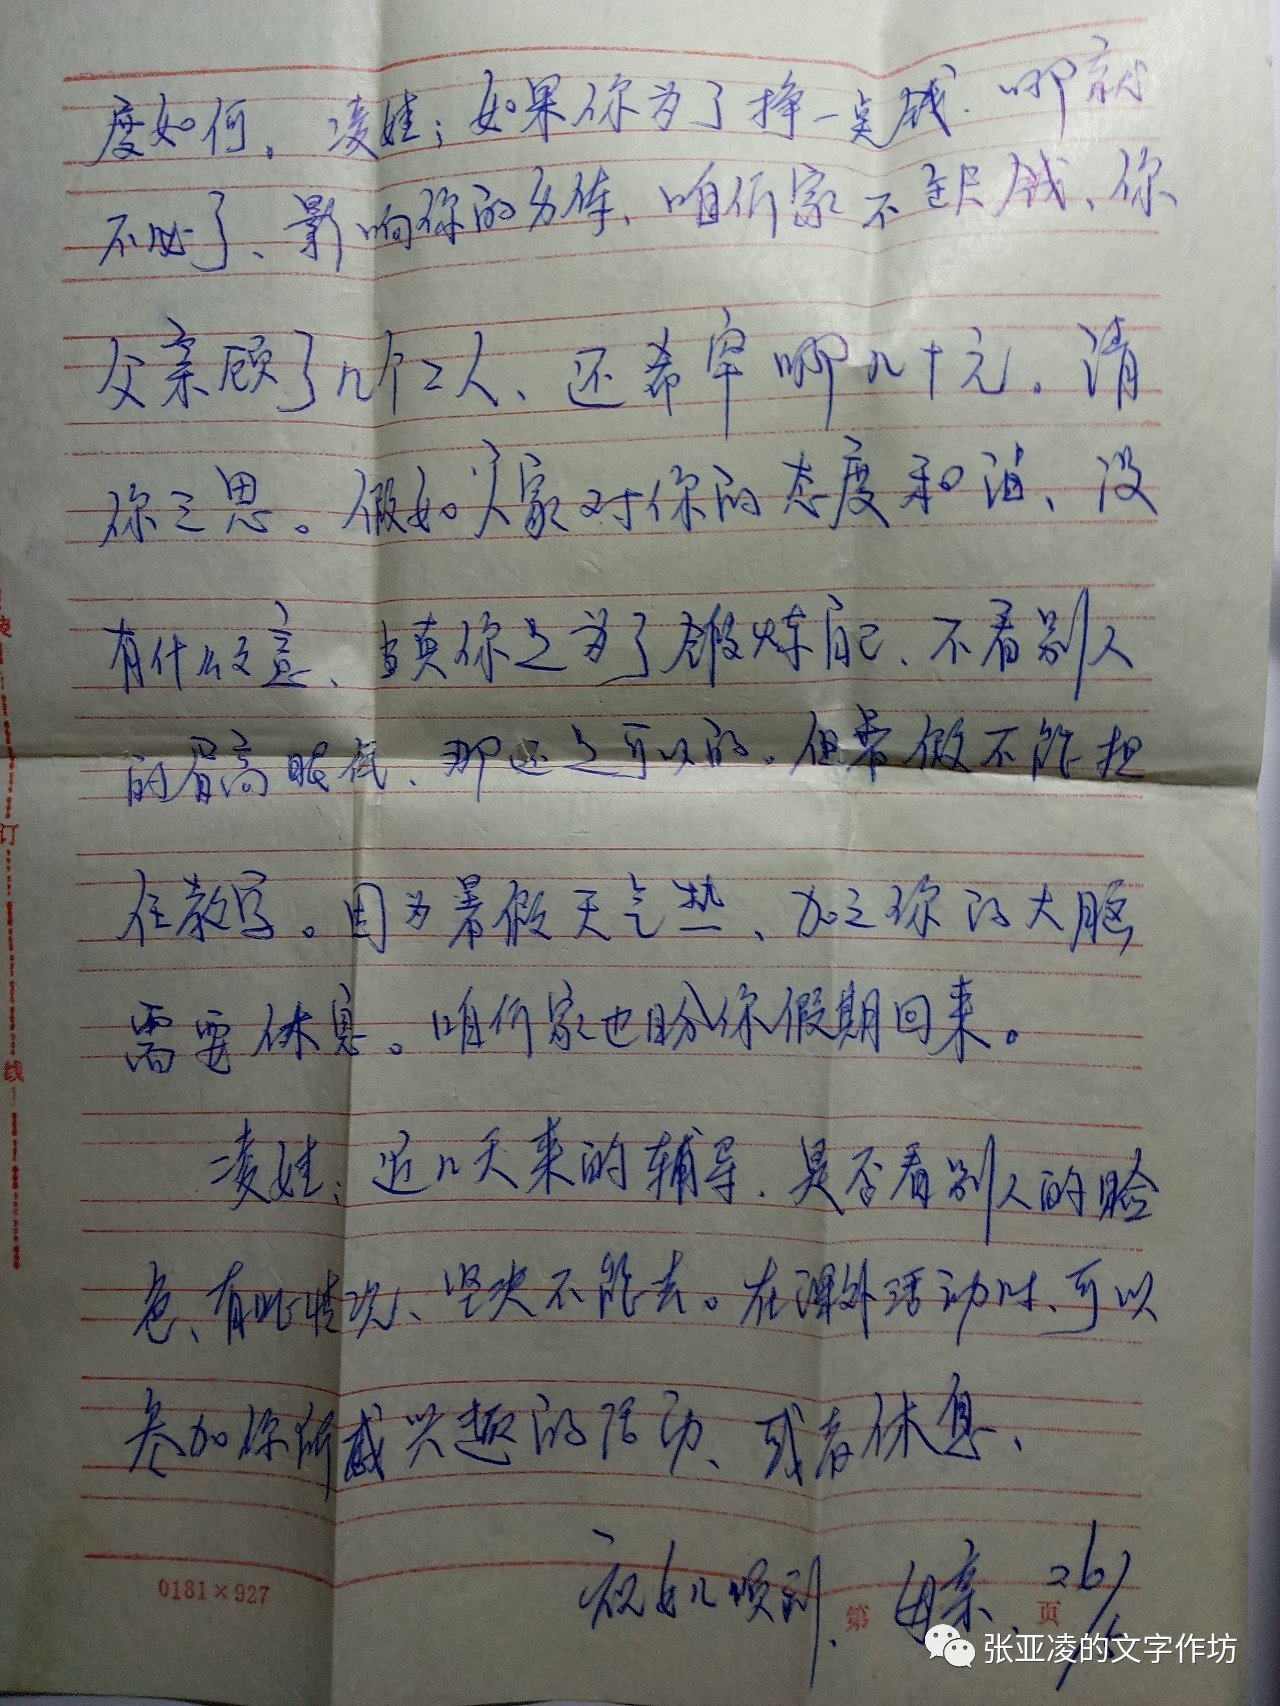 度如何。凌娃；如果你为了挣一点钱．哪就
不必了、影响你的身体、咱们家不缺钱、你
父亲顾了几个工人、还希罕哪几十元。请
你三思。假如人家对你的态度和洽、没
有什么意、当真你是为了锻炼自己、不看别人
的眉高眼低、那还是可以的。但暑假不能担
任教学。因为暑假天气热、加之你的大脑
需要休息。咱们家也盼你假期回来。
凌娃；近几天来的辅导．是否看别人的脸
色、有此情况、坚决不能去。在课外活动时、可以
参加你所感兴趣的活动、或者休息、
祝女儿顺利、母亲、26/5
0181×927
第 页
订
线
张亚凌的文字作坊